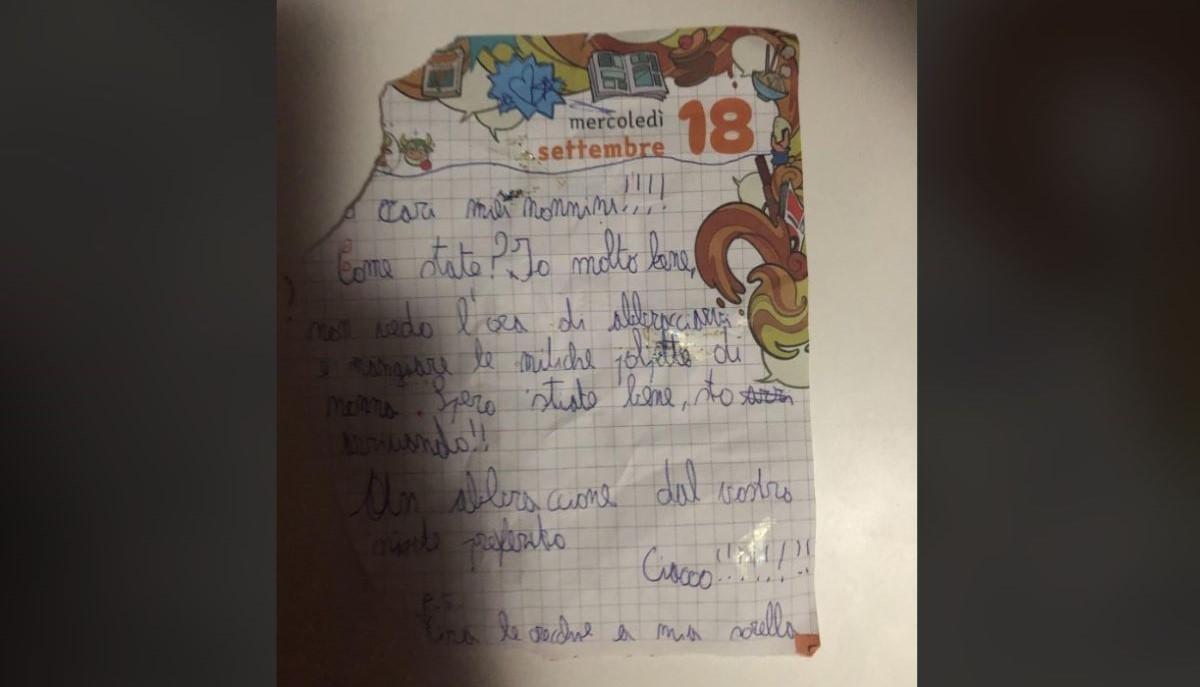 mercoledì 18
settembre
o cari miei nonnini!!!!
Come state? Io molto bene,
non vedo l'ora di abbracciarvi
e mangiare le mitiche polpette di
nonna. Spero stiate bene, sto
arrivando!!
Un abbraccione dal vostro
nipote preferito
Ciaooo!!!!!!!
P.S.
Tira le orecchie a mia sorella